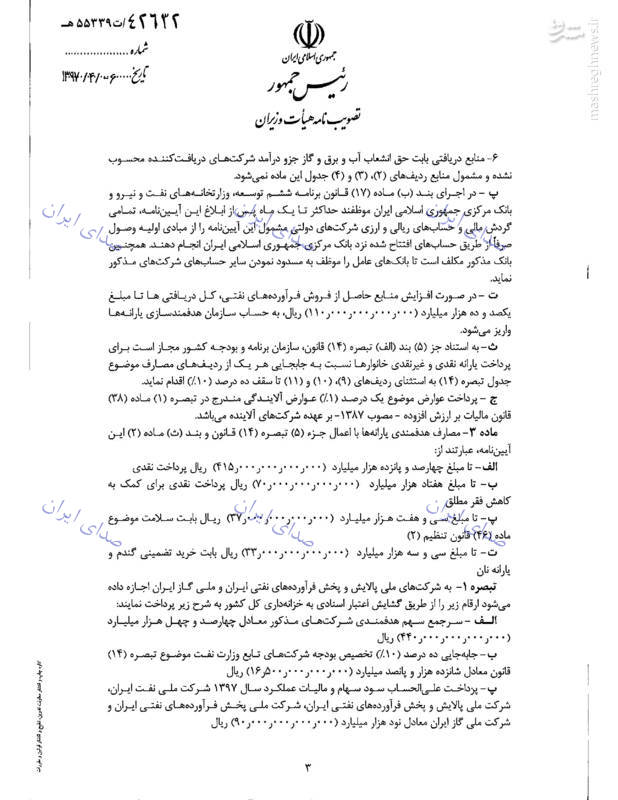 ۴۲۶۳۲/ت۵۵۳۳۹هـ
شماره
تاریخ ۱۳۹۷/۰۴/۰۶
جمهوری اسلامی ایران
رئیس جمهور
تصویب نامه هیأت وزیران
مشرق
mashreghnews.ir
۶- منابع دریافتی بابت حق انشعاب آب و برق و گاز جزو درآمد شرکت‌های دریافت‌کننده محسوب
نشده و مشمول منابع ردیف‌های (۲)، (۳) و (۴) جدول این ماده نمی‌شود.
پ – در اجرای بند (ب) ماده (۱۷) قانون برنامه ششم توسعه، وزارتخانه‌های نفت و نیرو و
بانک مرکزی جمهوری اسلامی ایران موظفند حداکثر تا یک ماه پس از ابلاغ این آیین‌نامه، تمامی
گردش مالی و حساب‌های ریالی و ارزی شرکت‌های دولتی مشمول این آیین‌نامه را از مبادی اولیه وصول
صرفاً از طریق حساب‌های افتتاح شده نزد بانک مرکزی جمهوری اسلامی ایران انجام دهند. همچنین
بانک مذکور مکلف است تا بانک‌های عامل را موظف به مسدود نمودن سایر حساب‌های شرکت‌های مذکور
نماید.
ت – در صورت افزایش منابع حاصل از فروش فرآورده‌های نفتی، کل دریافتی ها تا مبلغ
یکصد و ده هزار میلیارد (۱۱۰٫۰۰۰٫۰۰۰٫۰۰۰٫۰۰۰) ریال، به حساب سازمان هدفمندسازی یارانه‌ها
واریز می‌شود.
ث- به استناد جز (۵) بند (الف) تبصره (۱۴) قانون، سازمان برنامه و بودجه کشور مجاز است برای
پرداخت یارانه نقدی و غیرنقدی خانوارها نسبت به جابجایی هر یک از ردیف‌های مصارف موضوع
جدول تبصره (۱۴) به استثنای ردیف‌های (۹)، (۱۰) و (۱۱) تا سقف ده درصد (۱۰٪) اقدام نماید.
ج – پرداخت عوارض موضوع یک درصد (۱٪) عوارض آلایندگی مندرج در تبصره (۱) ماده (۳۸)
قانون مالیات بر ارزش افزوده - مصوب ۱۳۸۷- بر عهده شرکت‌های آلاینده می‌باشد.
ماده ۳- مصارف هدفمندی یارانه‌ها با اعمال جزء (۵) تبصره (۱۴) قانون و بند (ث) ماده (۲) این
آیین‌نامه، عبارتند از:
الف- تا مبلغ چهارصد و پانزده هزار میلیارد (۴۱۵٫۰۰۰٫۰۰۰٫۰۰۰٫۰۰۰) ریال پرداخت نقدی
ب- تا مبلغ هفتاد هزار میلیارد (۷۰٫۰۰۰٫۰۰۰٫۰۰۰٫۰۰۰) ریال پرداخت نقدی برای کمک به
کاهش فقر مطلق
پ- تا مبلغ سی و هفت هزار میلیارد (۳۷٫۰۰۰٫۰۰۰٫۰۰۰٫۰۰۰) ریال بابت سلامت موضوع
ماده (۴۶) قانون تنظیم (۲)
ت- تا مبلغ سی و سه هزار میلیارد (۳۳٫۰۰۰٫۰۰۰٫۰۰۰٫۰۰۰) ریال بابت خرید تضمینی گندم و
یارانه نان
تبصره ۱- به شرکت‌های ملی پالایش و پخش فرآورده‌های نفتی ایران و ملی گاز ایران اجازه داده
می‌شود ارقام زیر را از طریق گشایش اعتبار اسنادی به خزانه‌داری کل کشور به شرح زیر پرداخت نمایند:
الف – سرجمع سهم هدفمندی شرکت‌های مذکور معادل چهارصد و چهل هزار میلیارد
(۴۴۰٫۰۰۰٫۰۰۰٫۰۰۰٫۰۰۰) ریال
ب- جابه‌جایی ده درصد (۱۰٪) تخصیص بودجه شرکت‌های تابع وزارت نفت موضوع تبصره (۱۴)
قانون معادل شانزده هزار و پانصد میلیارد (۱۶٫۵۰۰٫۰۰۰٫۰۰۰٫۰۰۰) ریال
پ- پرداخت علی‌الحساب سود سهام و مالیات عملکرد سال ۱۳۹۷ شرکت ملی نفت ایران،
شرکت ملی پالایش و پخش فرآورده‌های نفتی ایران، شرکت ملی پخش فرآورده‌های نفتی ایران و
شرکت ملی گاز ایران معادل نود هزار میلیارد (۹۰٫۰۰۰٫۰۰۰٫۰۰۰٫۰۰۰) ریال
۳
صدای ایران
صدای ایران
صدای ایران
صدای ایران
صدای ایران
صدای ایران